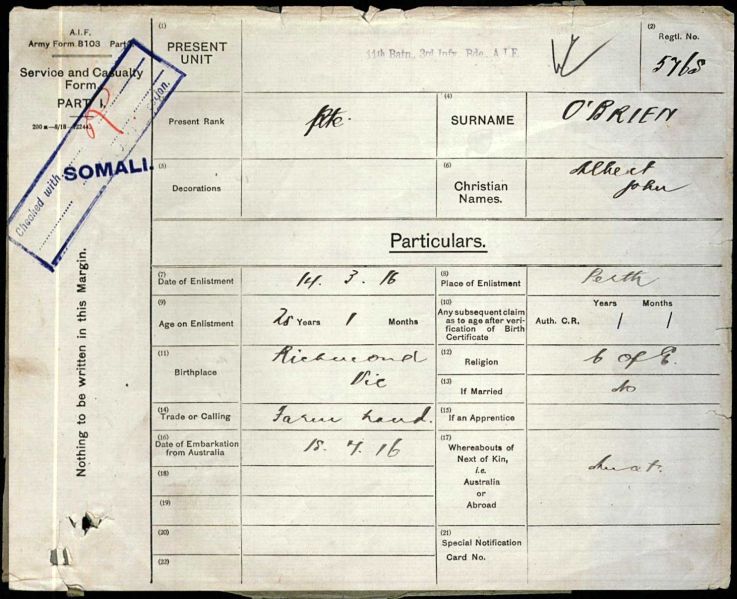 A.I.F.
Army Form B103 Part
Service and Casualty
Form
PART I.
Checked with
SOMALI.
Nothing to be written in this Margin.
(1)
PRESENT
UNIT
11th Batn., 3rd Infy. Bde., A.I.F.
(2)
Regtl. No.
5768
Present Rank
Pte.
(4)
SURNAME
O'BRIEN
(5)
Decorations
(6)
Christian
Names.
Albert
John
Particulars.
(7)
Date of Enlistment
14. 3. 16
(8)
Place of Enlistment
Perth
(9)
Age on Enlistment
28 Years 1 Months
(10)
Any subsequent claim
as to age after veri-
fication of Birth
Certificate
Auth. C.R.
Years Months
(11)
Birthplace
Richmond
Vic
(12)
Religion
C of E.
(13)
If Married
No
(14)
Trade or Calling
Farm hand.
(15)
If an Apprentice
(16)
Date of Embarkation
from Australia
15. 7. 16
(17)
Whereabouts of
Next of Kin,
i.e.
Australia
or
Abroad
(18)
(19)
(20)
(21)
Special Notification
Card No.
(22)